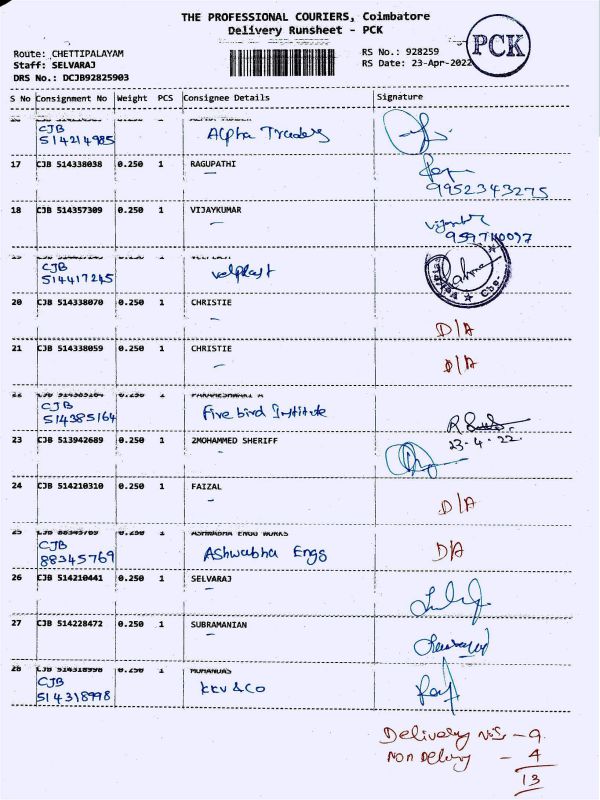 THE PROFESSIONAL COURIERS, Coimbatore
Delivery Runsheet - PCK
PCK
Route: CHETTIPALAYAM
RS No.: 928259
Staff: SELVARAJ
RS Date: 23-Apr-2022
DRS No.: DCJB92825903
S No Consignment No Weight PCS Consignee Details Signature
CJB
514214985 Alpha Traders
17 CJB 514338038 0.250 1 RAGUPATHI
9952343275
18 CJB 514357309 0.250 1 VIJAYKUMAR
19
CJB
514417245 velplast
20 CJB 514338070 0.250 1 CHRISTIE
D/A
21 CJB 514338059 0.250 1 CHRISTIE
D/A
22 CJB 514385164 0.250 1 PARAMESHWARI A
CJB
514385164 Five bird Institute
23 CJB 513942689 0.250 1 2MOHAMMED SHERIFF
23-4-22
24 CJB 514210310 0.250 1 FAIZAL
D/A
25 CJB 88345769 0.250 1 ASHWABHA ENGG WORKS
CJB
88345769 Ashwabha Engg D/A
26 CJB 514210441 0.250 1 SELVARAJ
27 CJB 514228472 0.250 1 SUBRAMANIAN
28 CJB 514318998 0.250 1
CJB
514318998 KKV & Co
Delivery No's - 9
Non Delivery - 4
13